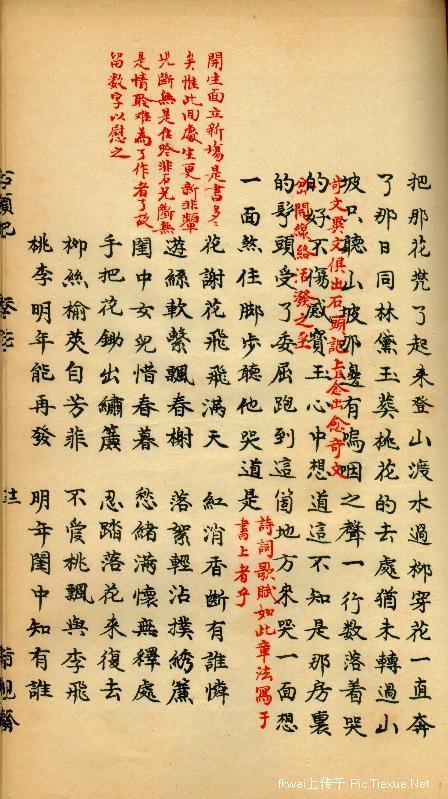 把那花兠了起来登山渡水過柳穿花一直奔
了那日同林黛玉葬桃花的去處猶未轉過山
奇文異文俱出石頭記上且念出念奇文
坡只聽山坡那邊有嗚咽之聲一行数落着哭
岔開線絡活潑之至
的好不傷感寳玉心中想道這不知是那房裏
的丫頭受了委屈跑到這個地方来哭一面想
一面煞住脚步聽他哭道是
詩詞歌賦如此章法寫于
書上者乎
開生面立新塲是書多多
矣惟此回處生更新非顰
兒斷無是佳吟非石兄斷無
是情聆難為了作者了故
留数字以慰之
花謝花飛飛滿天 紅消香斷有誰憐
遊絲軟繫飄春榭 落絮輕沾撲綉簾
閨中女兒惜春暮 愁緒滿懷無釋處
手把花鋤出繡簾 忍踏落花来復去
柳絲榆莢自芳菲 不愛桃飄與李飛
桃李明年能再發 明年閨中知有誰
fkwai上传于 Pic.Tiexue.Net